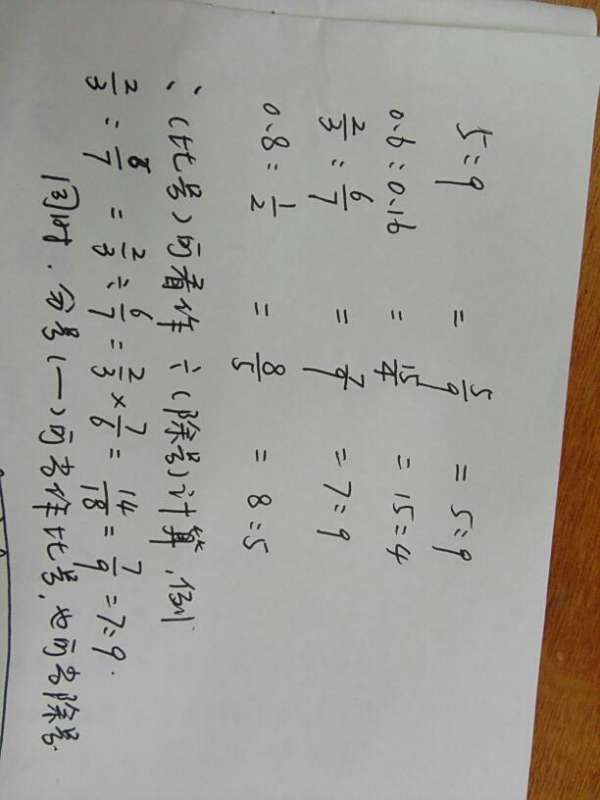 5:9 = 5/9 = 5:9
0.6:0.16 = 15/4 = 15:4
2/3 : 6/7 = 7/9 = 7:9
0.8 : 1/2 = 8/5 = 8:5
:(比号)可看作÷(除号)计算,例
2/3 : 8/7 = 2/3 ÷ 6/7 = 2/3 × 7/6 = 14/18 = 7/9 = 7:9.
同时.分号(一)可看作比号,也可看除号.